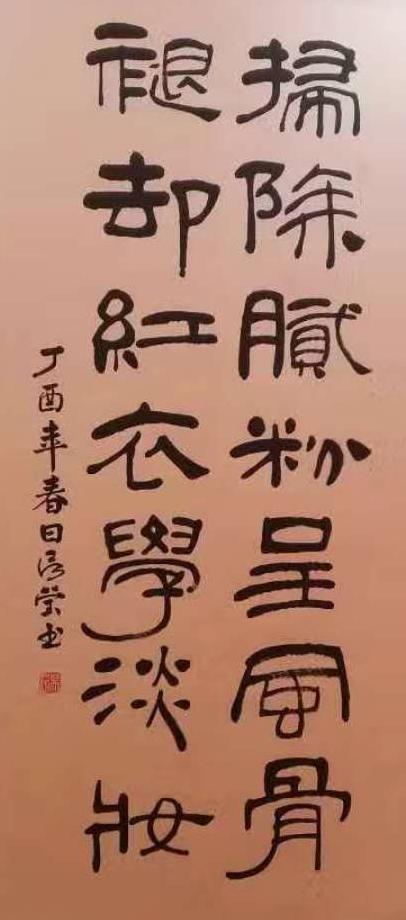 掃除膩粉呈風骨
褪却紅衣學淡妝
丁酉年春日榮书